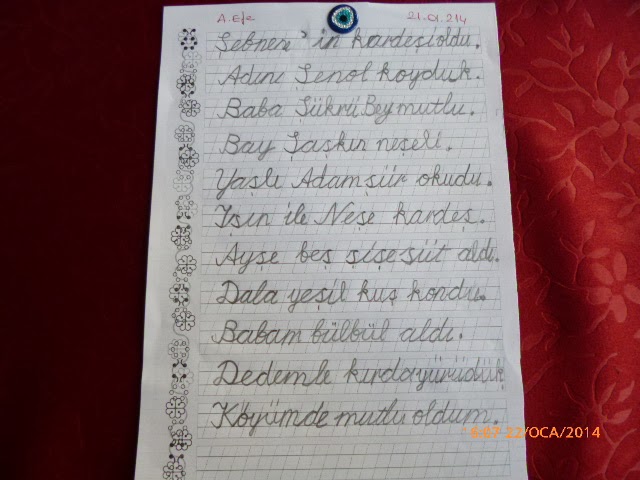 A. Efe 21.01.214
Şebnem'in kardeşi oldu.
Adını Şenol koyduk.
Baba Şükrü Bey mutlu.
Bay Şaşkın neşeli.
Yaşlı Adam şiir okudu.
Işın ile Neşe kardeş.
Ayşe beş şişe süt aldı.
Dala yeşil kuş kondu.
Babam bülbül aldı.
Dedemle kırda yürüdük
Köyümde mutlu oldum.
16:07 22/OCA/2014